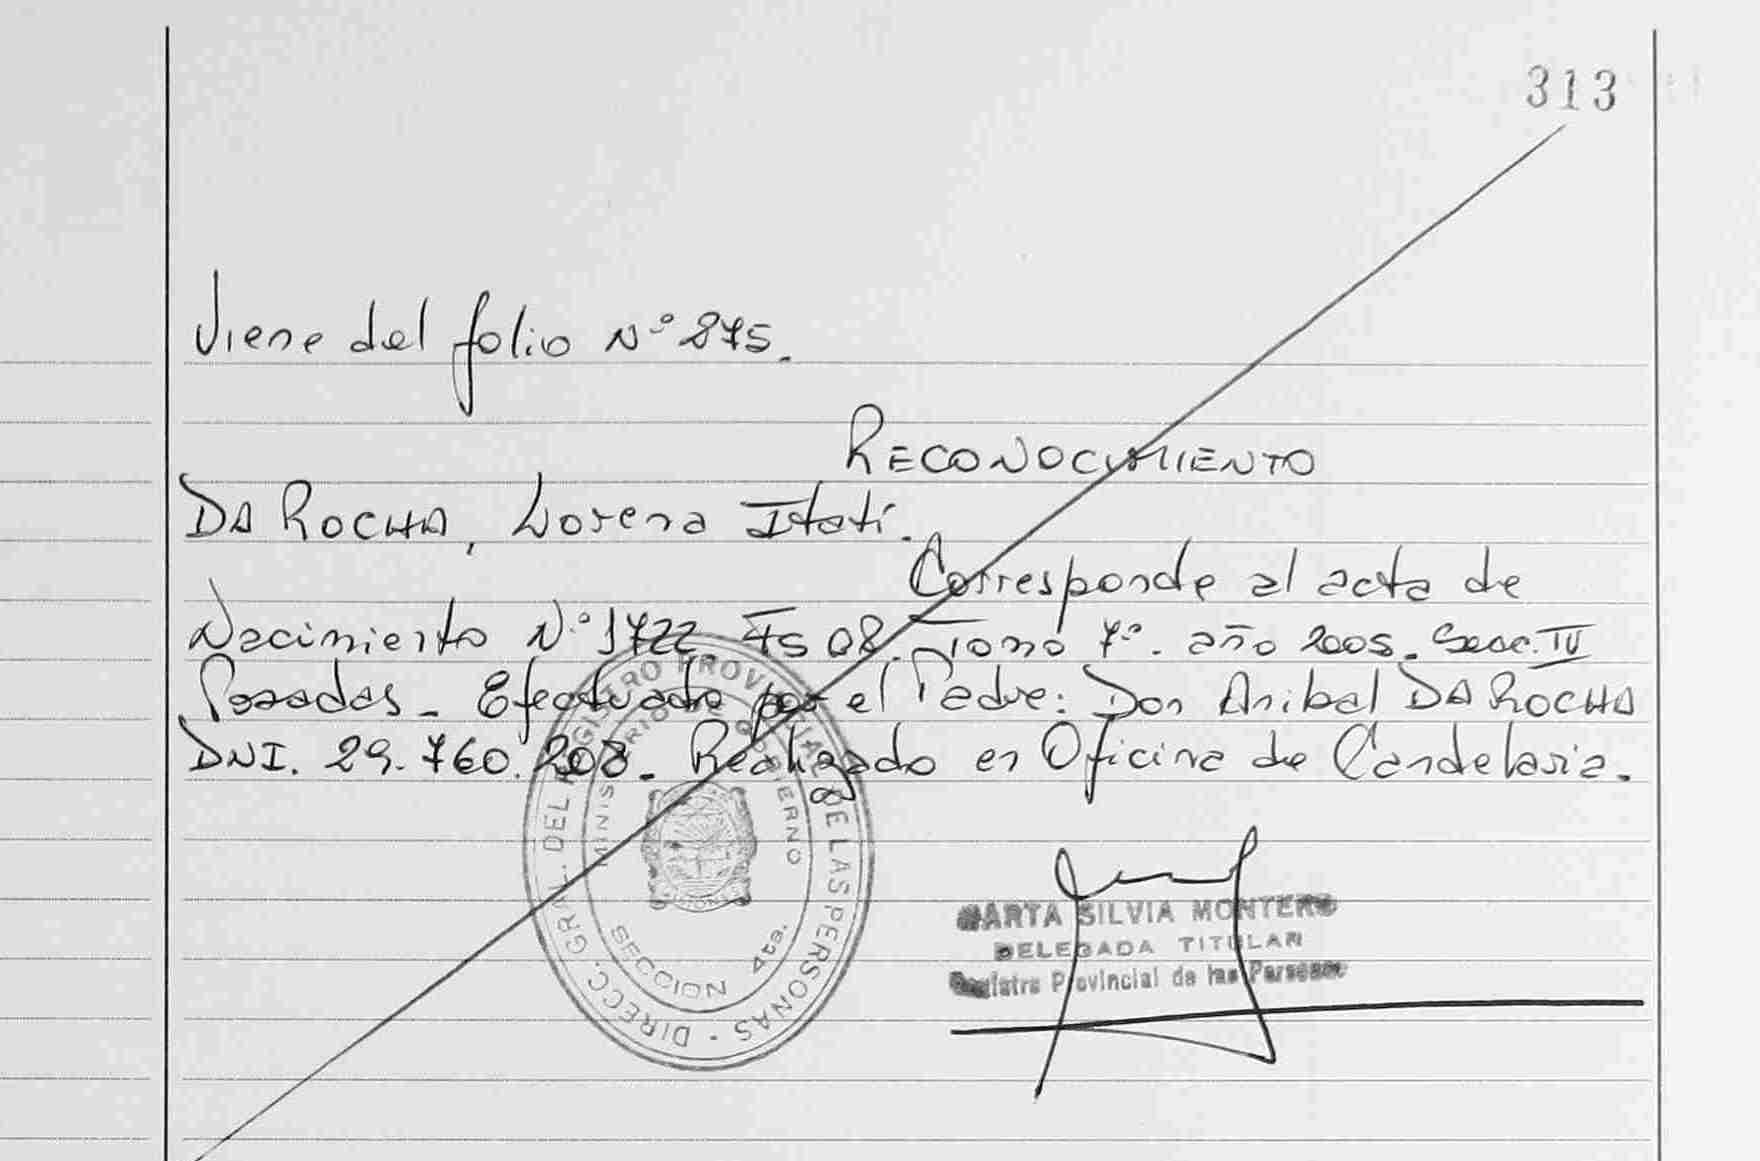 313
Viene del folio Nº 275.
RECONOCIMIENTO
DA ROCHA, Lorena Itatí.
Corresponde al acta de
Nacimiento Nº 1722 Fs 08. Tomo 7º. año 2005. Secc. IV
Posadas - Efectuado por el Padre: Don Anibal DA ROCHA
DNI. 29.760.208. Realizado en Oficina de Candelaria.
DIRECC. GRAL. DEL REGISTRO PROVINCIAL DE LAS PERSONAS -
MINISTERIO DE GOBIERNO
MISIONES
SECCION 4ta.
MARTA SILVIA MONTERO
DELEGADA TITULAR
Registro Provincial de las Personas